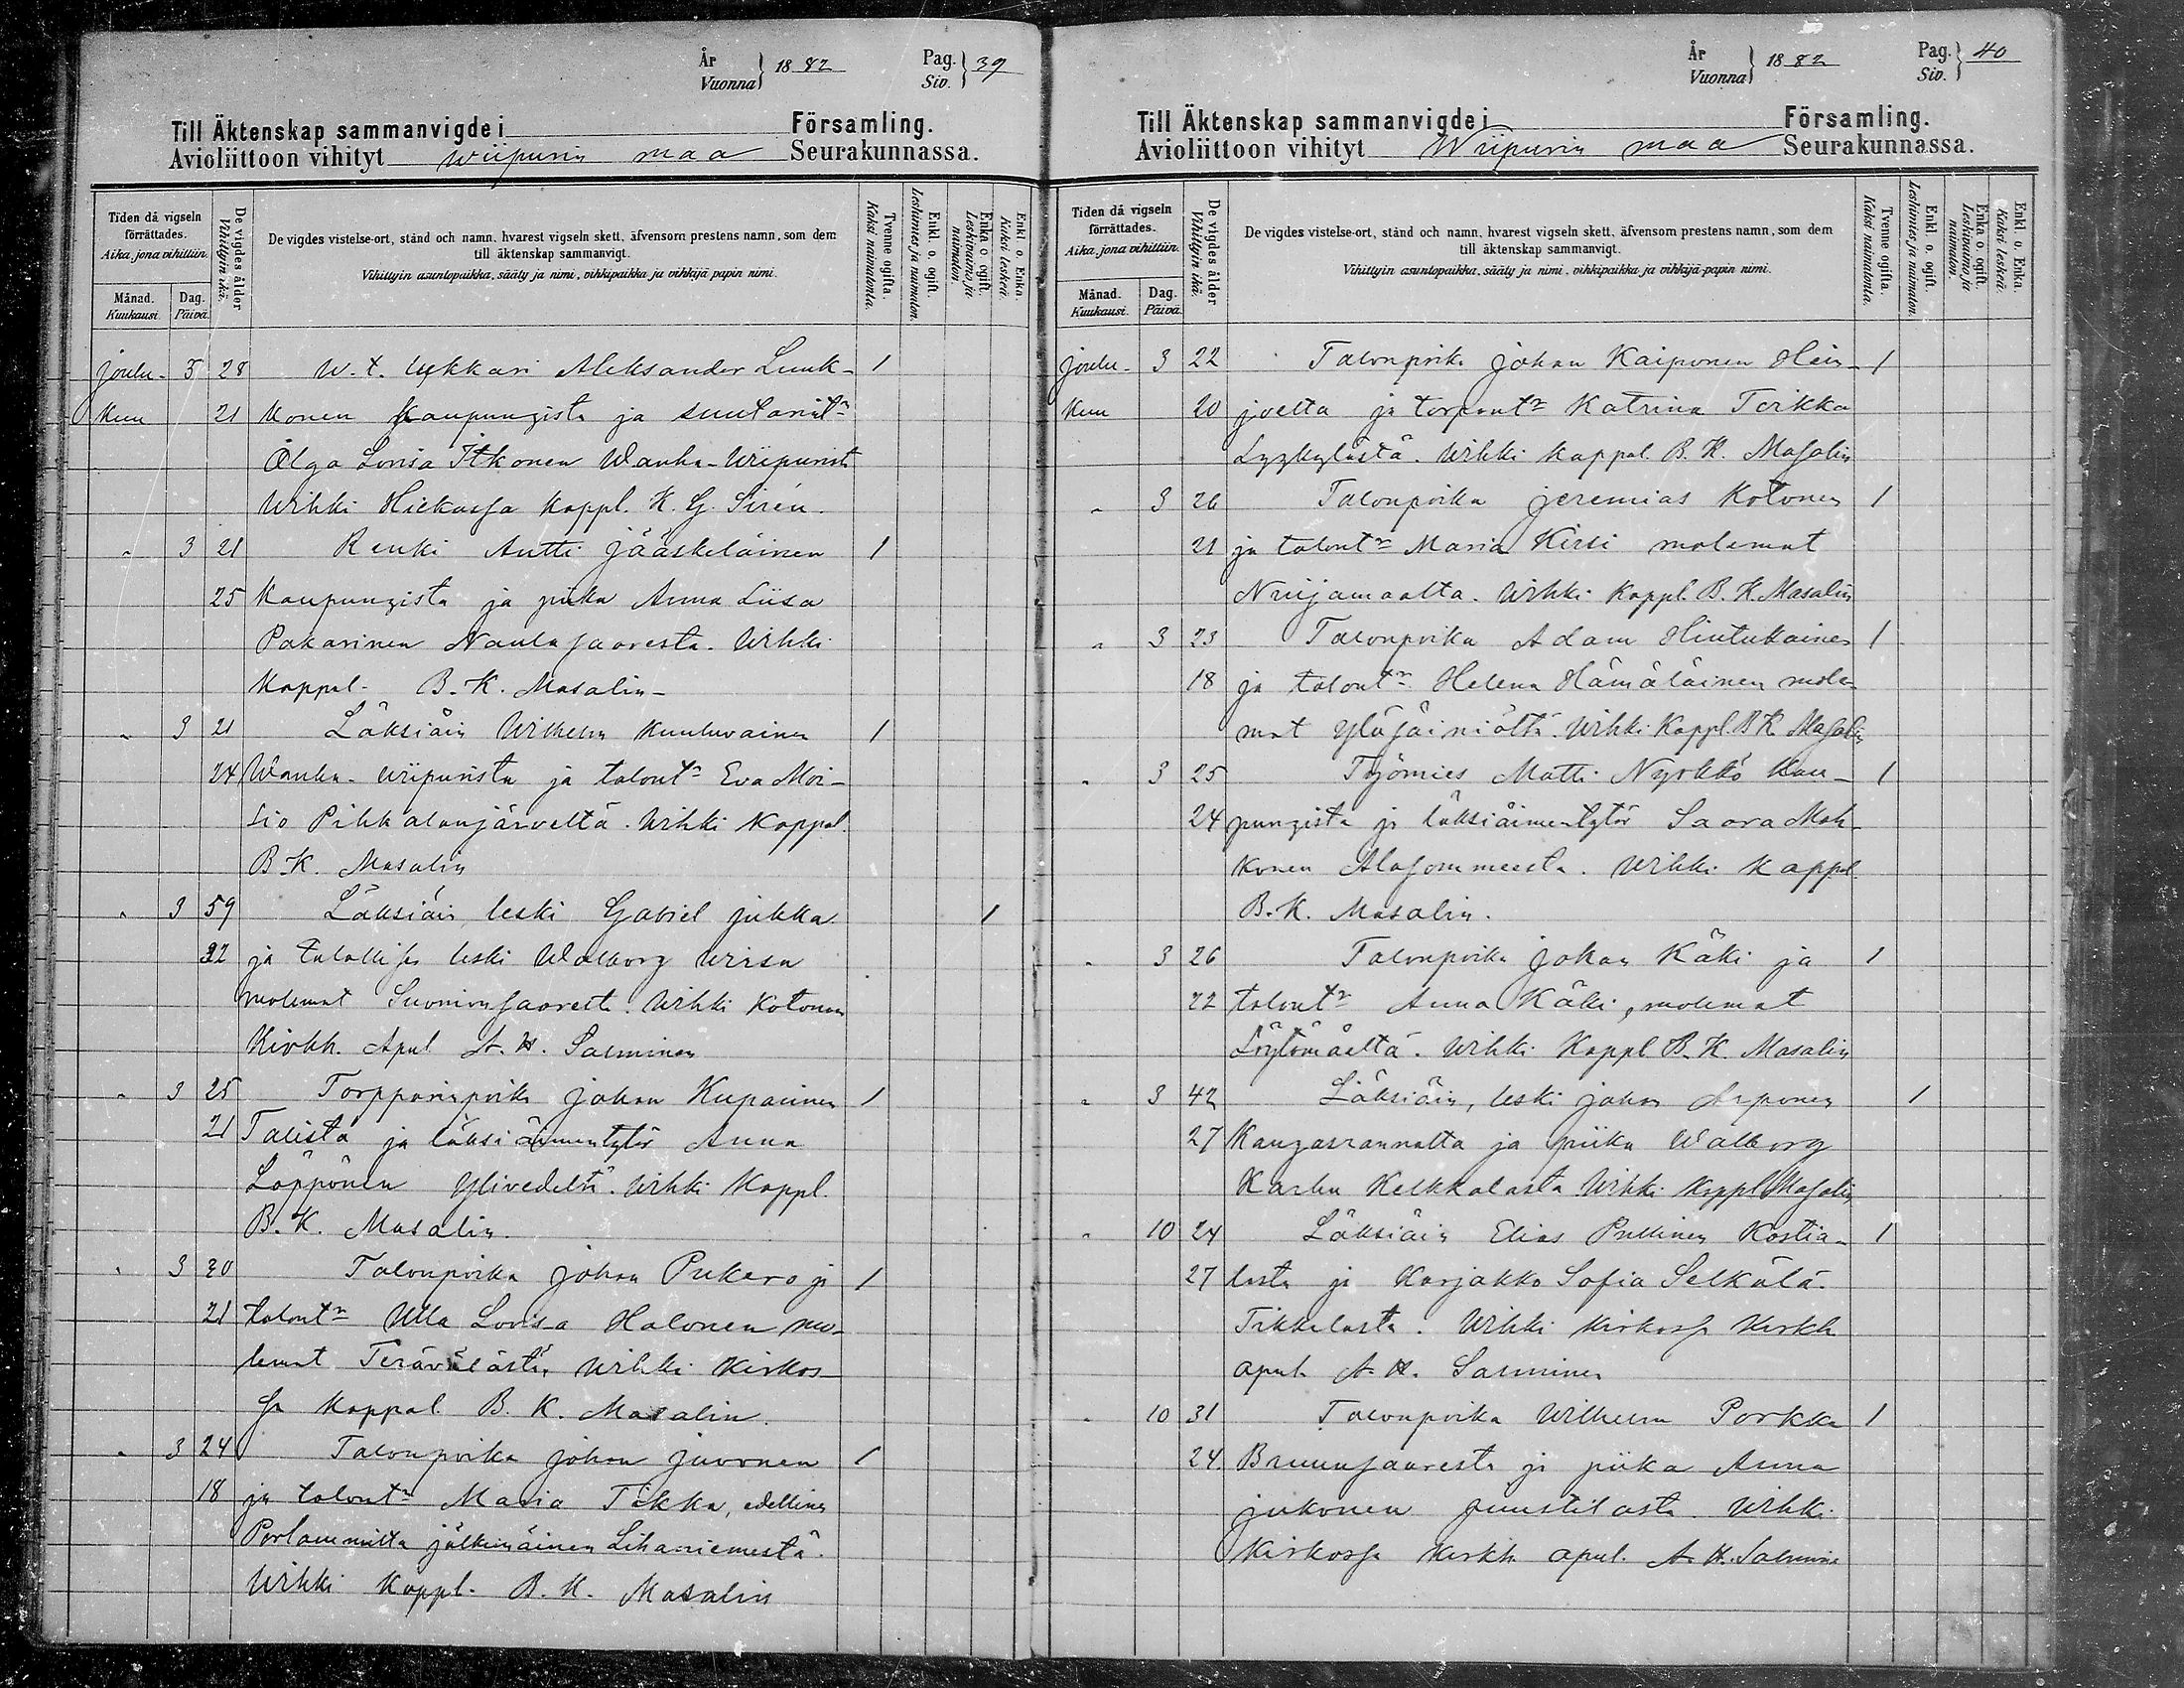 År
Vuonna } 1882
Pag.
Siv. } 39
Till Äktenskap sammanvigde i Församling.
Avioliittoon vihityt Wiipurin maa Seurakunnassa.
Tiden då vigseln förrättades.
Aika, jona vihittiin.
Månad. Kuukausi.
Dag. Päivä.
De vigdes ålder
Vihittyin ikä.
De vigdes vistelse-ort, stånd och namn, hvarest vigseln skett, äfvensom prestens namn, som dem
till äktenskap sammanvigt.
Vihittyin asuntopaikka, sääty ja nimi, vihkipaikka ja vihkijä papin nimi.
Tvenne ogifta.
Kaksi naimatonta.
Enkl. o. ogift.
Leskimies ja naimaton.
Enka o ogift.
Leskivaimo ja naimaton.
Enkl. o. Enka.
Kaksi leskeä.
Joulu- 3 28 W. t. lukkari Aleksander Luuk- 1
kuu 21 konen kaupungista ja suutarint:r
Olga Lovisa Itkonen Wanha-Wiipurist
Wihki Hiekassa kappl. K. G. Sirén.
" 3 21 Renki Antti Jääskeläinen 1
25 kaupungista ja piika Anna Liisa
Pakarinen Naulasaaresta. Wihki
Kappal. B. K. Masalin
" 3 21 Läksiäin Wilhelm Kuuluvainen 1
24 Wanha-wiipurista ja talont:r Eva Moi-
sio Pihkalanjärveltä. Wihki Kappal.
B. K. Masalin
" 3 59 Läksiäin leski Gabriel Jukka 1
32 ja talollisen leski Walborg Wirsu
molemat Suonionsaarest. Wihki kotonan
Kirkh. Apul A. H. Salminen
" 3 25 Torpparinpoika Johan Kuparinen 1
21 Talista ja läksiäimentytör Anna
Löppönen Ylivedeltä. Wihki Kappl.
B. K. Masalin.
" 3 30 Talonpoika Johan Pukero ja 1
21 talont:r Ulla Lovisa Halonen mo-
lemat Terävälästä, Wihki Kirkos-
sa Kappal. B. K. Masalin.
" 3 24 Talonpoika Johan Juvonen 1
18 ja talont:r Maria Tikka, edellinen
Porlammilta jälkimäinen Lihaniemestä.
Wihki Kappl. B. K. Masalin
År
Vuonna } 1882
Pag.
Siv. } 40
Till Äktenskap sammanvigde i Församling.
Avioliittoon vihityt Wiipurin maa Seurakunnassa.
Tiden då vigseln förrättades.
Aika, jona vihittiin.
Månad. Kuukausi.
Dag. Päivä.
De vigdes ålder
Vihittyin ikä.
De vigdes vistelse-ort, stånd och namn, hvarest vigseln skett, äfvensom prestens namn, som dem
till äktenskap sammanvigt.
Vihittyin asuntopaikka, sääty ja nimi, vihkipaikka ja vihkijä papin nimi.
Tvenne ogifta.
Kaksi naimatonta.
Enkl. o. ogift.
Leskimies ja naimaton.
Enka o. ogift.
Leskivaimo ja naimaton.
Enkl. o. Enka.
Kaksi leskeä.
Joulu- 3 22 Talonpoika Johan Kaiponen Hein- 1
kuu 20 joelta ja torpant:r Katrina Torkka
Lyykylästä. Wihki kappal. B. K. Masalin
" 3 26 Talonpoika Jeremias Kotonen 1
21 ja talont:r Maria Kirsi molemat
Nuijamaalta. Wihki Kappl. B. K. Masalin
" 3 23 Talonpoika Adam Hintukainen 1
18 ja talont:r Helena Hämäläinen mole-
mat Yläsäiniöltä. Wihki Kappl. B K Masalin
" 3 25 Työmies Matti Nyrkkö Kau- 1
24 pungista ja läksiäimentytör Saara Moh-
konen Alasommeesta. Wihki Kappl
B. K. Masalin.
" 3 26 Talonpoika Johan Käki ja 1
22 talont:r Anna Käki, molemat
Löytömäeltä. Wihki Kappl B. K. Masalin
" 3 42 Läksiäin, leski Johan Arponen 1
27 Kangasrannalta ja piika Walborg
Karhu Kelkkalasta Wihki Kappl Masalin
" 10 24 Läksiäin Elias Pullinen Kostia- 1
27 lasta ja Karjakko Sofia Selkälä
Tikkalasta. Wihki Kirkossa Kirkh
apul. A. H. Salminen
" 10 31 Talonpoika Wilhelm Porkka 1
24. Bruunsaaresta ja piika Anna
Jukonen Juustilasta. Wihki
Kirkossa Kirkh apul. A. H. Salminen